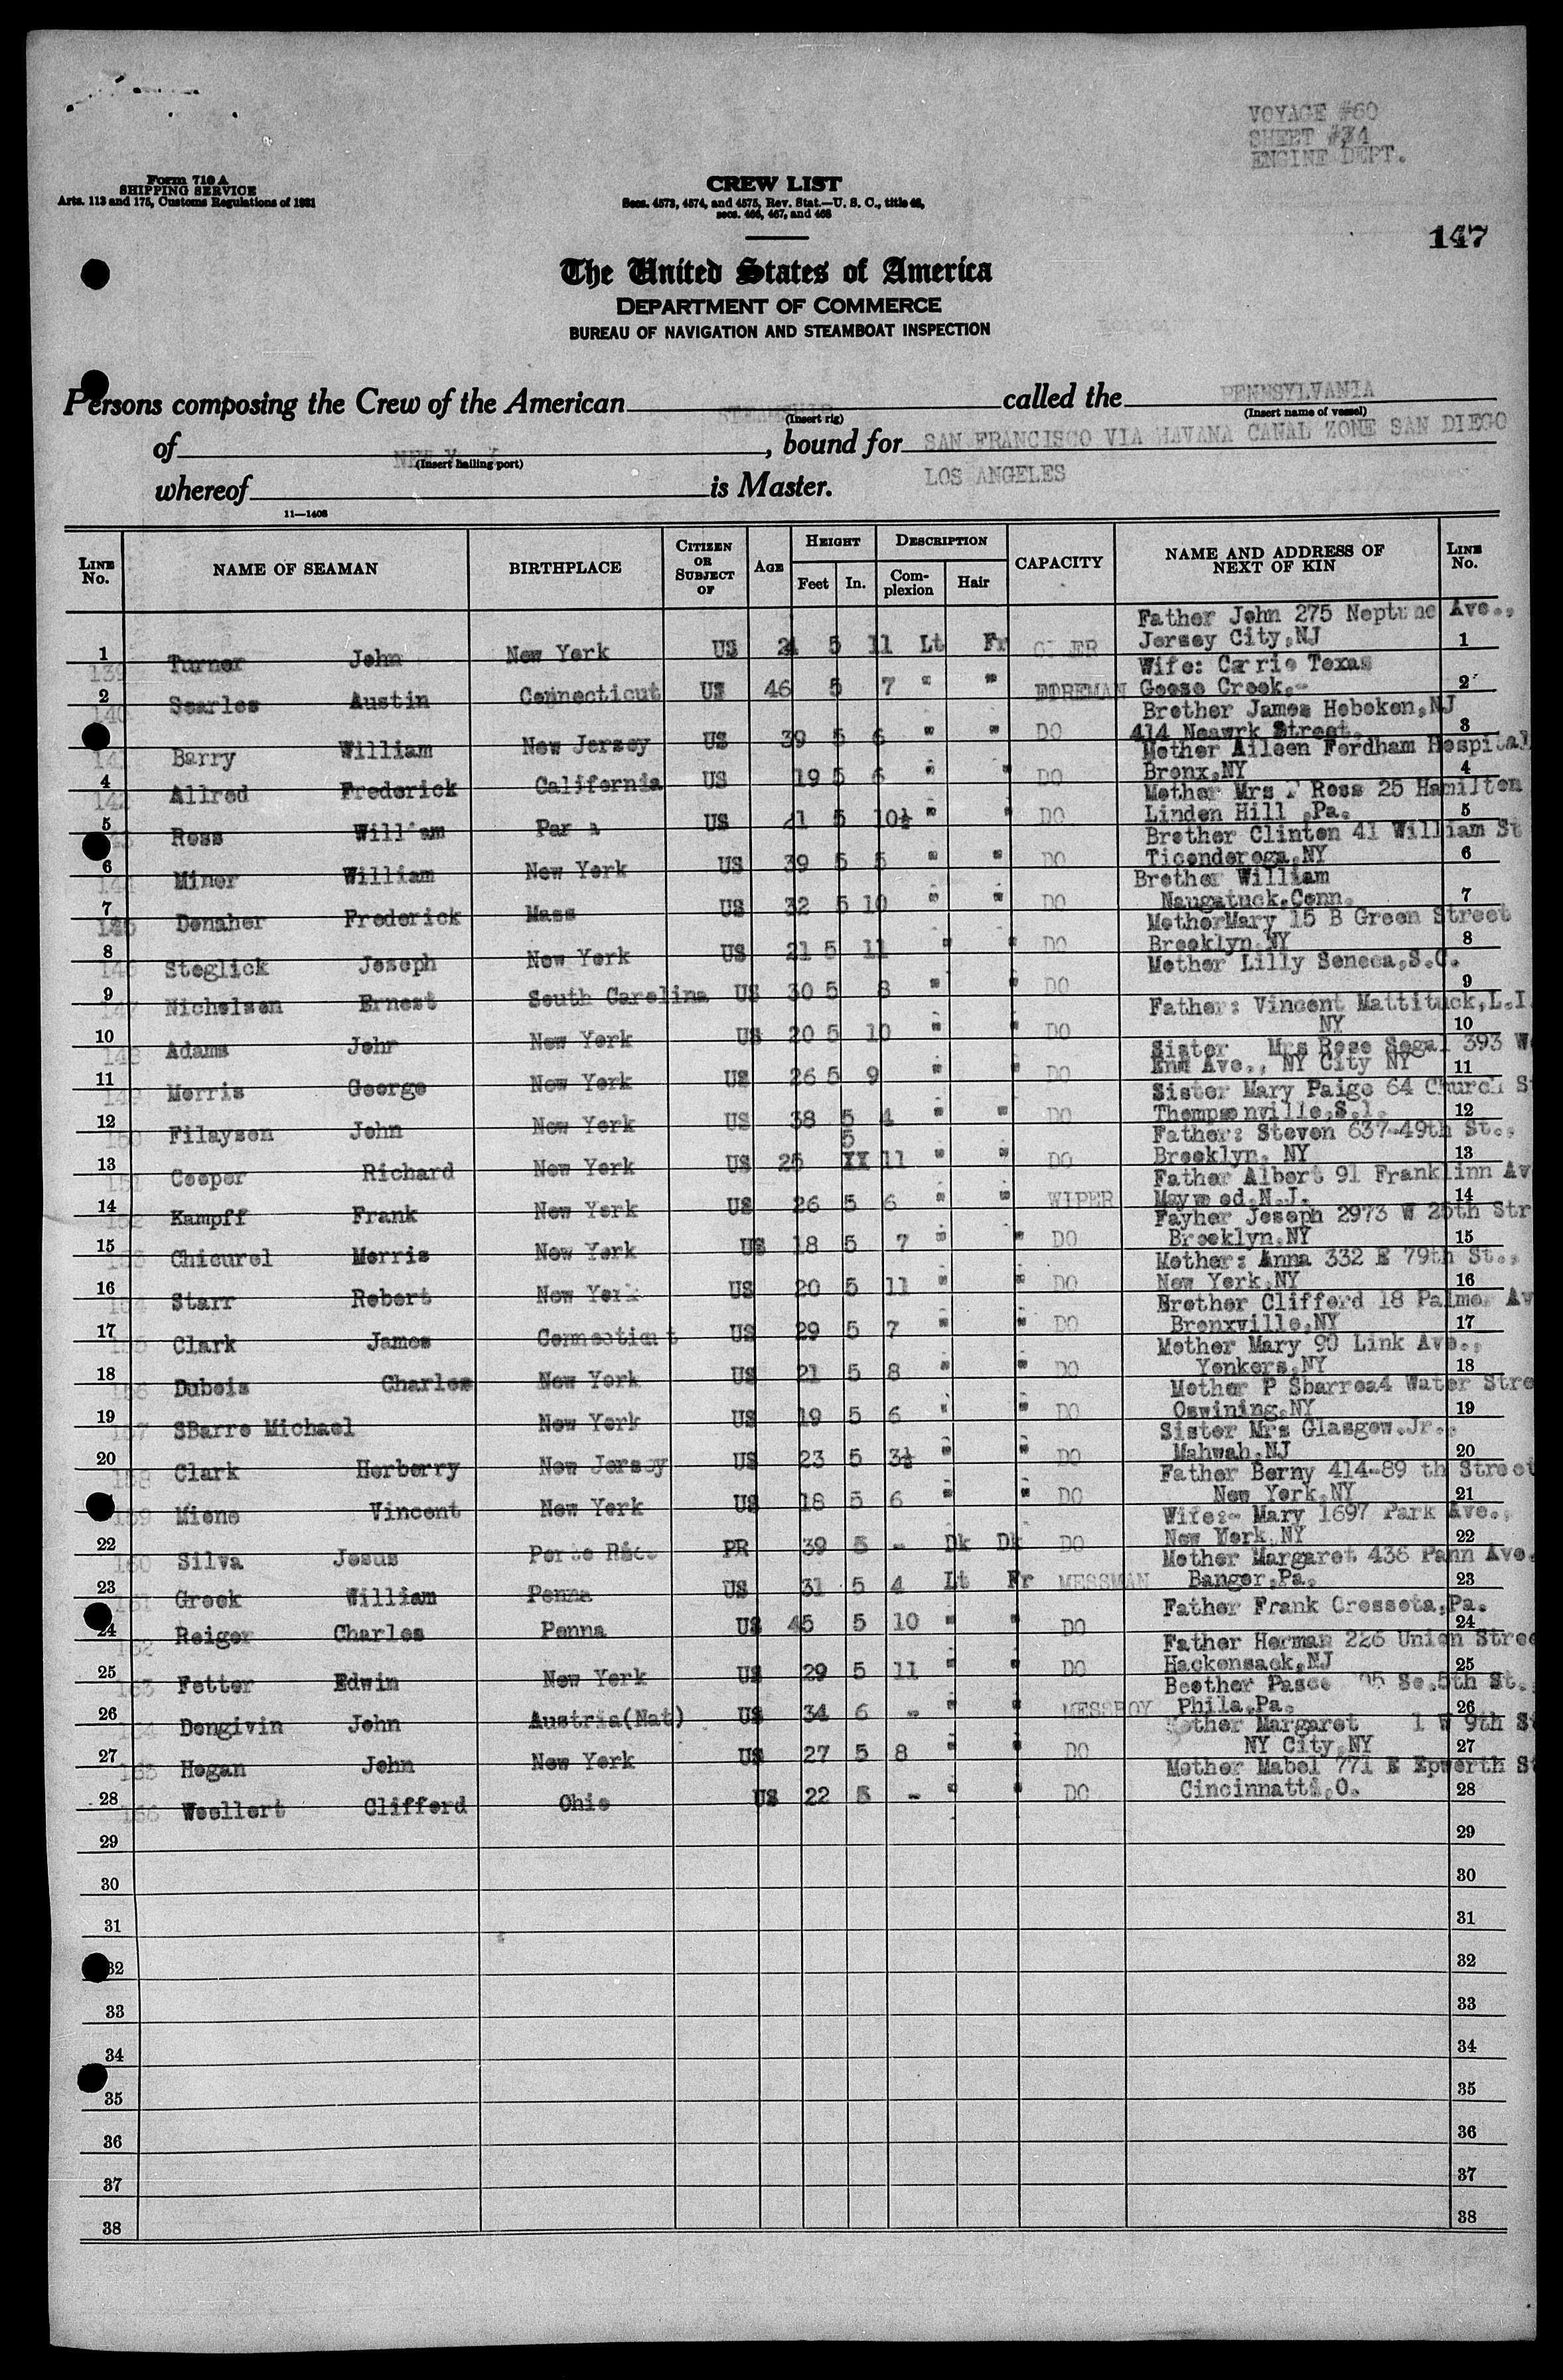 VOYAGE #60
SHEET #34
ENGINE DEPT.
Form 710 A
SHIPPING SERVICE
Arts. 113 and 175, Customs Regulations of 1931
CREW LIST
Secs. 4573, 4574, and 4575, Rev. Stat.—U. S. C., title 46,
secs. 466, 467, and 468
147
The United States of America
DEPARTMENT OF COMMERCE
BUREAU OF NAVIGATION AND STEAMBOAT INSPECTION
Persons composing the Crew of the American STEAMSHIP called the PENNSYLVANIA
(Insert rig) (Insert name of vessel)
of NEW Y , bound for SAN FRANCISCO VIA HAVANA CANAL ZONE SAN DIEGO
(Insert hailing port)
whereof is Master. LOS ANGELES
11—1408
LINE No. NAME OF SEAMAN BIRTHPLACE CITIZEN OR SUBJECT OF AGE HEIGHT Feet In. DESCRIPTION Complexion Hair CAPACITY NAME AND ADDRESS OF NEXT OF KIN LINE No.
Father John 275 Neptune Ave.,
1 139 Turner John New York US 24 5 11 Lt Fr OILER Jersey City,NJ 1
Wife: Carrie Texas
2 140 Searles Austin Connecticut US 46 5 7 " " FOREMAN Goose Creek.- 2
Brother James Hoboken,NJ
141 Barry William New Jersey US 39 5 6 " " DO 414 Neawrk Street. 3
Mother Aileen Fordham Hospital
4 142 Allred Frederick California US 19 5 6 " " DO Bronx,NY 4
Mother Mrs Ross 25 Hamilton
5 Ross William US 21 5 10½ " " DO Linden Hill ,Pa. 5
Brother Clinton 41 William St
6 144 Miner William New York US 39 5 5 " " DO Ticonderoga,NY 6
Brother William
7 145 Donaher Frederick Mass US 32 5 10 " " DO Naugatuck,Conn. 7
MotherMary 15 B Green Street
8 146 Steglick Joseph New York US 21 5 11 " " DO Brooklyn NY 8
Mother Lilly Seneca,S.C.
9 147 Nicholsen Ernest South Carolina US 30 5 8 " " DO 9
Father: Vincent Mattituck,L.I.
10 148 Adams John New York US 20 5 10 " " DO NY 10
Sister Mrs Rose Segal 393 We
11 149 Morris George New York US 26 5 9 " " DO End Ave., NY City NY 11
Sister Mary Paige 64 Church St
12 150 Filaysen John New York US 38 5 4 " " DO Thompsonville,S.I. 12
5 Father: Steven 637-49th St.,
13 151 Cooper Richard New York US 25 XX 11 " " DO Brooklyn, NY 13
Father Albert 91 Franklinn Av
14 152 Kampff Frank New York US 26 5 6 " " WIPER Maywood,N.J. 14
Fayher Joseph 2973 W 25th Str
15 153 Chicurel Morris New York US 18 5 7 " " DO Brooklyn,NY 15
Mother: Anna 332 E 79th St.,
16 154 Starr Robert New York US 20 5 11 " " DO New York,NY 16
Brother Clifford 18 Palmer Av
17 155 Clark James Connecticut US 29 5 7 " " DO Bronxville,NY 17
Mother Mary 90 Link Ave.,
18 156 Dubois Charles New York US 21 5 8 " " DO Yonkers,NY 18
Mother P Sbarroa4 Water Stre
19 157 SBarro Michael New York US 19 5 6 " " DO Oswining,NY 19
Sister Mrs Glasgow.Jr.,
20 158 Clark Herberry New Jersey US 23 5 3½ " " DO Mahwah,NJ 20
Father Berny 414-89 th Street
159 Miene Vincent New York US 18 5 6 " " DO New York,NY 21
Wife:- Mary 1697 Park Ave.,
22 160 Silva Jesus Porto Rico PR 39 5 - Dk Dk DO New York,NY 22
Mother Margaret 436 Pann Ave.
23 161 Greek William Penna US 31 5 4 Lt Fr MESSMAN Bangor,Pa. 23
Father Frank Cresseta,Pa.
24 162 Reiger Charles Penna US 45 5 10 " " DO 24
Father Herman 226 Union Stree
25 163 Fetter Edwin New York US 29 5 11 " " DO Hackensack,NJ 25
Beother 05 So.5th St.,
26 164 Dongivin John Austria(Nat) US 34 6 - " " MESSBOY Phila,Pa. 26
Mother Margaret 1 W 9th St
27 165 Hogan John New York US 27 5 8 " " DO NY City,NY 27
Mother Mabel 771 E Epworth St
28 166 Woellert Clifford Ohio US 22 5 - " " DO Cincinnatti,O. 28
29 29
30 30
31 31
32 32
33 33
34 34
35 35
36 36
37 37
38 38